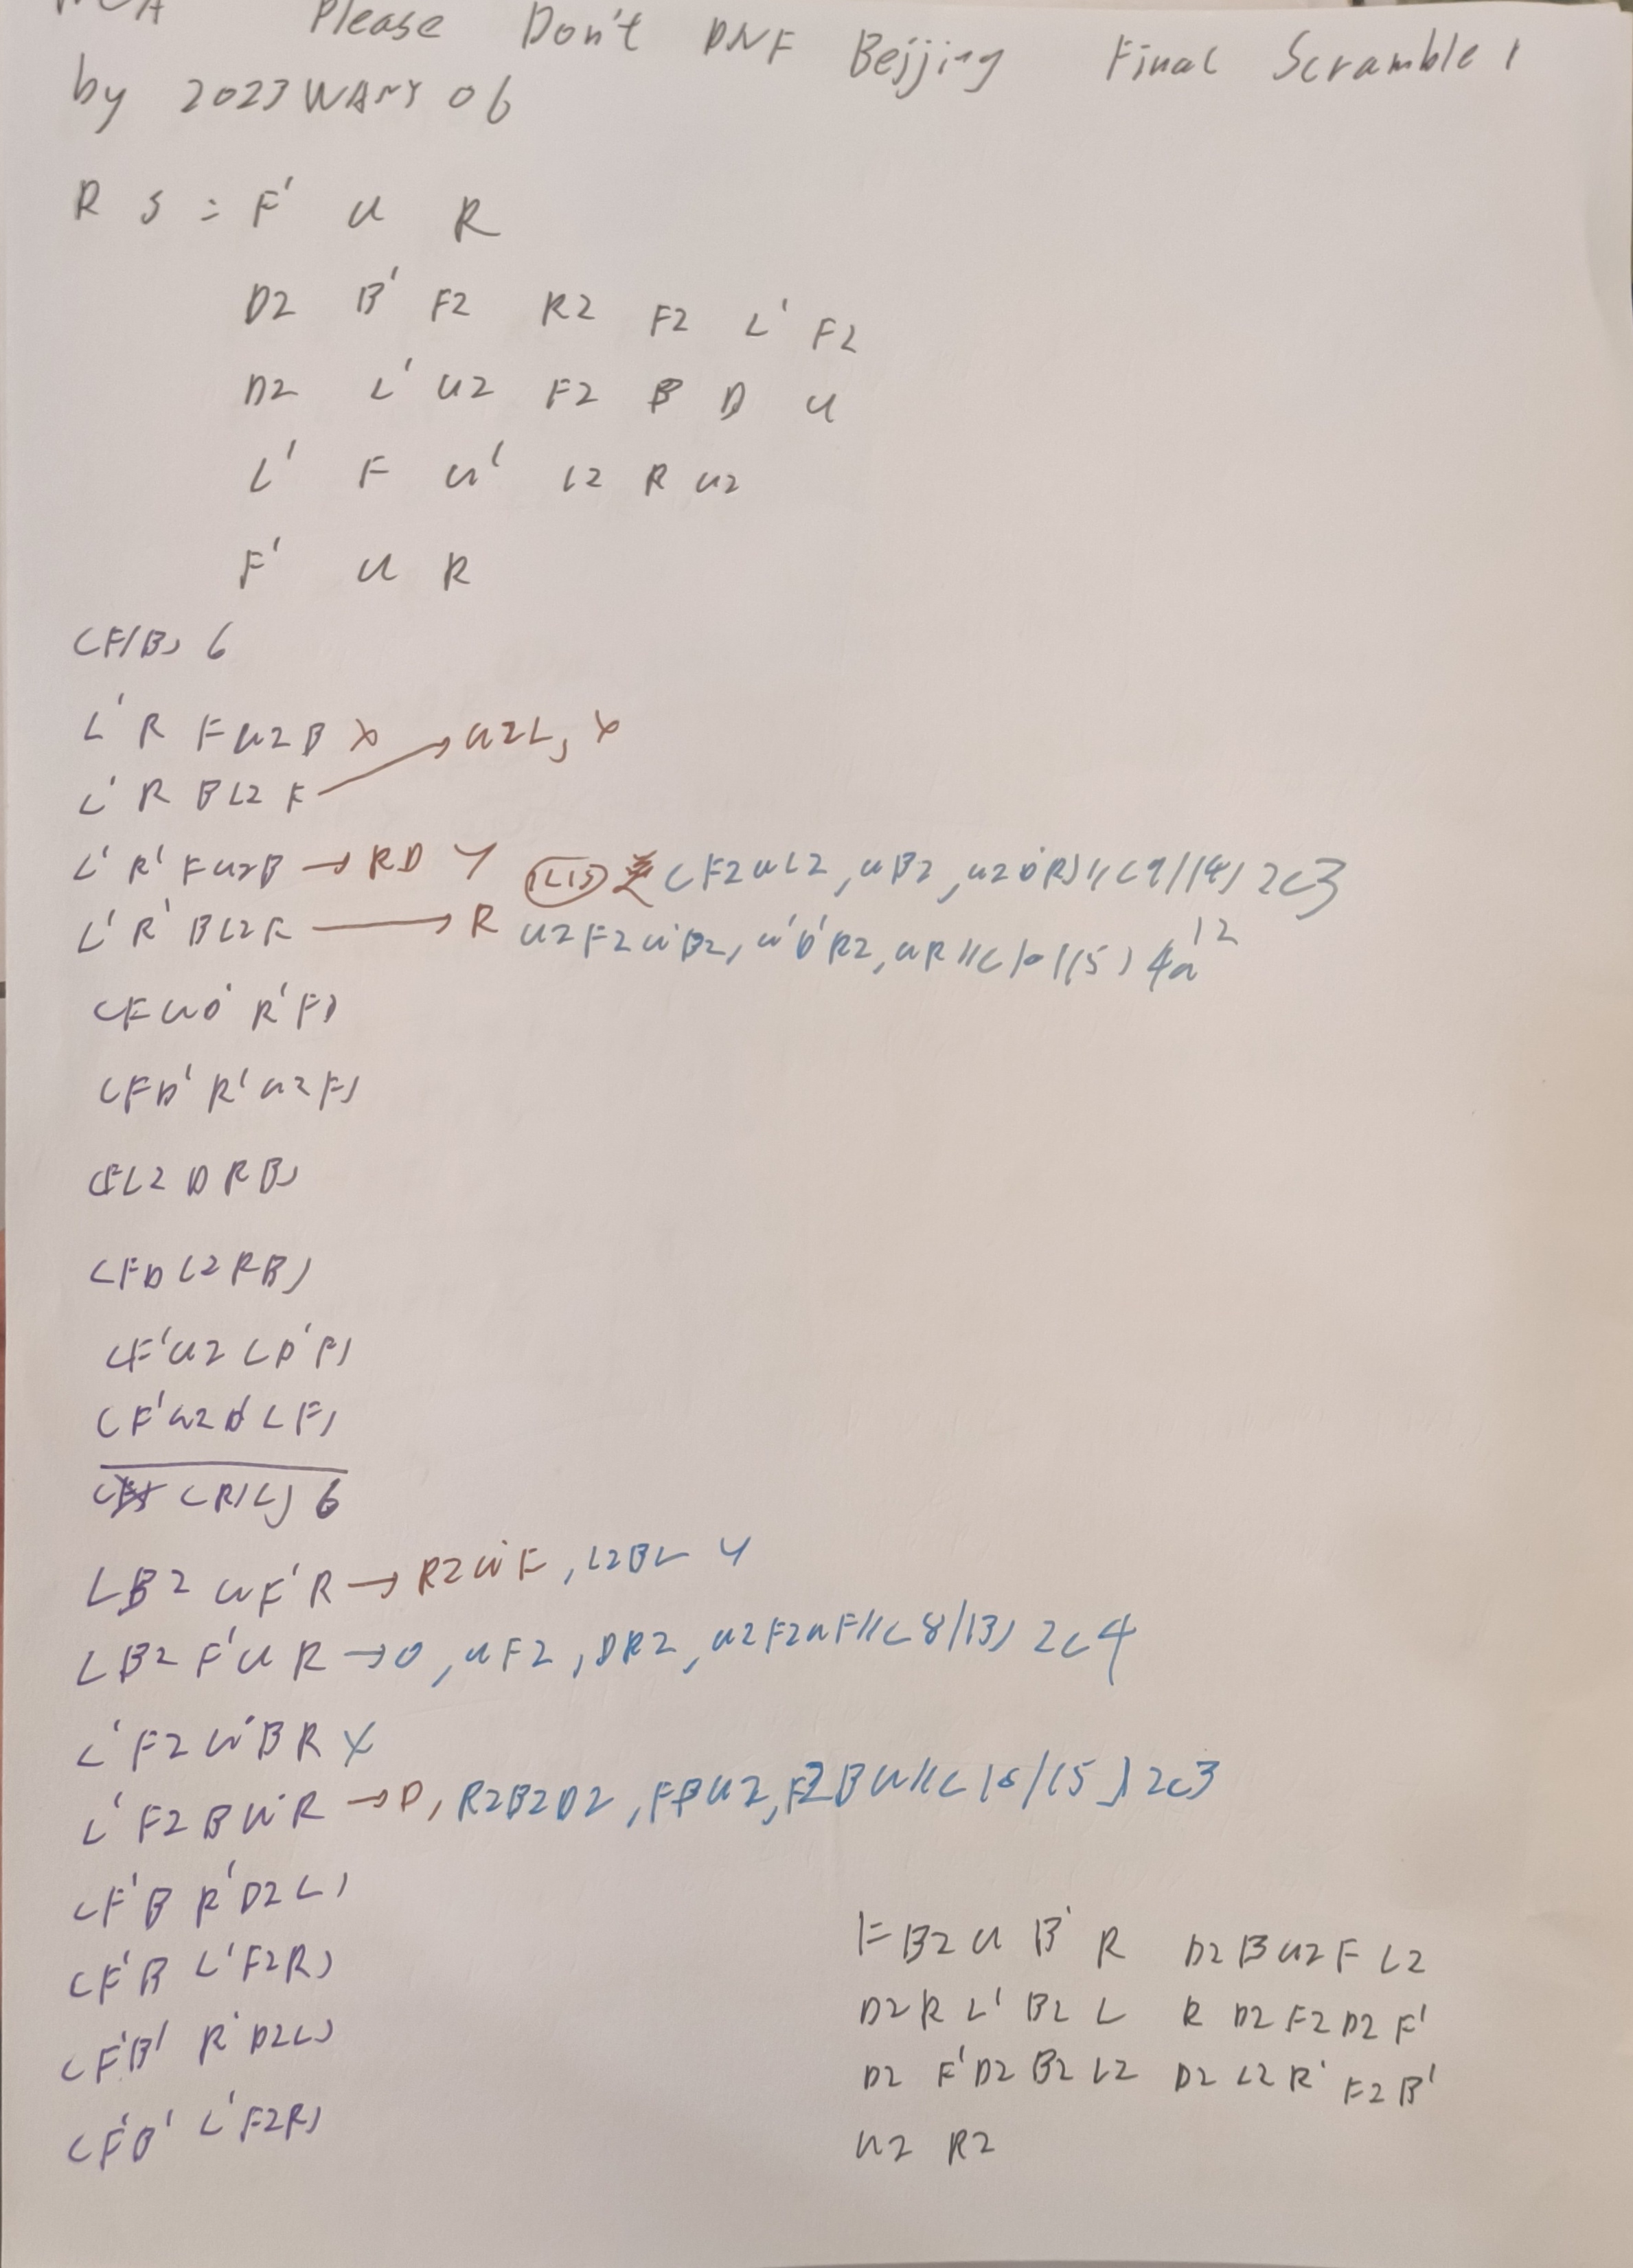 Please Don't DNF Beijing Final Scramble 1
by 2023WANY06
R S = F' U R
D2 B' F2 R2 F2 L' F2
D2 L' U2 F2 B D U
L' F U' L2 R U2
F' U R
(F/B) 6
L' R F U2 B X
L' R B L2 F → U2L, X
L' R' F U2 B → RD Y (L1S) (F2 U L2, U B2, U2 D' R) // (9/14) 2c3
L' R' B L2 F → R U2 F2 U' B2, U' D' R2, U R // (10/15) 4a 12
(F U D' R' F)
(F D' R' U2 F)
(F L2 D R B)
(F D L2 R B)
(F' U2 L D' F)
(F' U2 D' L F)
(R/L) 6
L B2 U F' R → R2 U' F, L2 B L Y
L B2 F' U R → 0, U F2, D R2, U2 F2 U F // (8/13) 2c4
L' F2 U' B R X
L' F2 B U' R → D, R2 B2 D2, F B U2, F2 B U // (10/15) 2c3
(F' B R' D2 L)
(F' B L' F2 R)
(F' B' R' D2 L)
(F' B' L' F2 R)
F B2 U B' R D2 B U2 F L2
D2 R L' B2 L R D2 F2 D2 F'
D2 F' D2 B2 L2 D2 L2 R' F2 B'
U2 R2